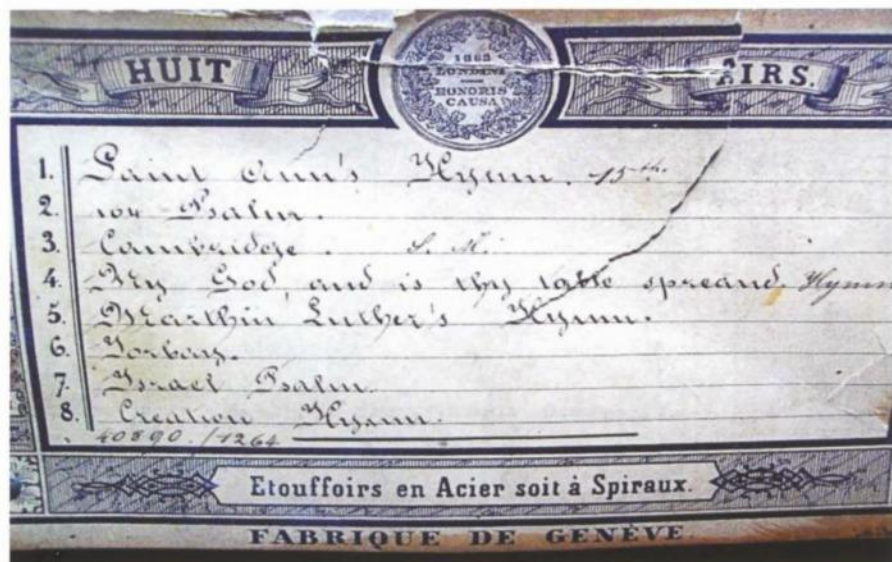 HUIT AIRS.
1862
LONDINI
HONORIS
CAUSA
1. Saint Ann's Hymn. 15th.
2. 104 Psalm.
3. Cambridge. S. M.
4. My God, and is thy table spreand. Hymn
5. Marthin Luther's Hymn.
6. Torbay.
7. Israel Psalm.
8. Creation Hymn.
40890./1264
Etouffoirs en Acier soit à Spiraux.
FABRIQUE DE GENÈVE